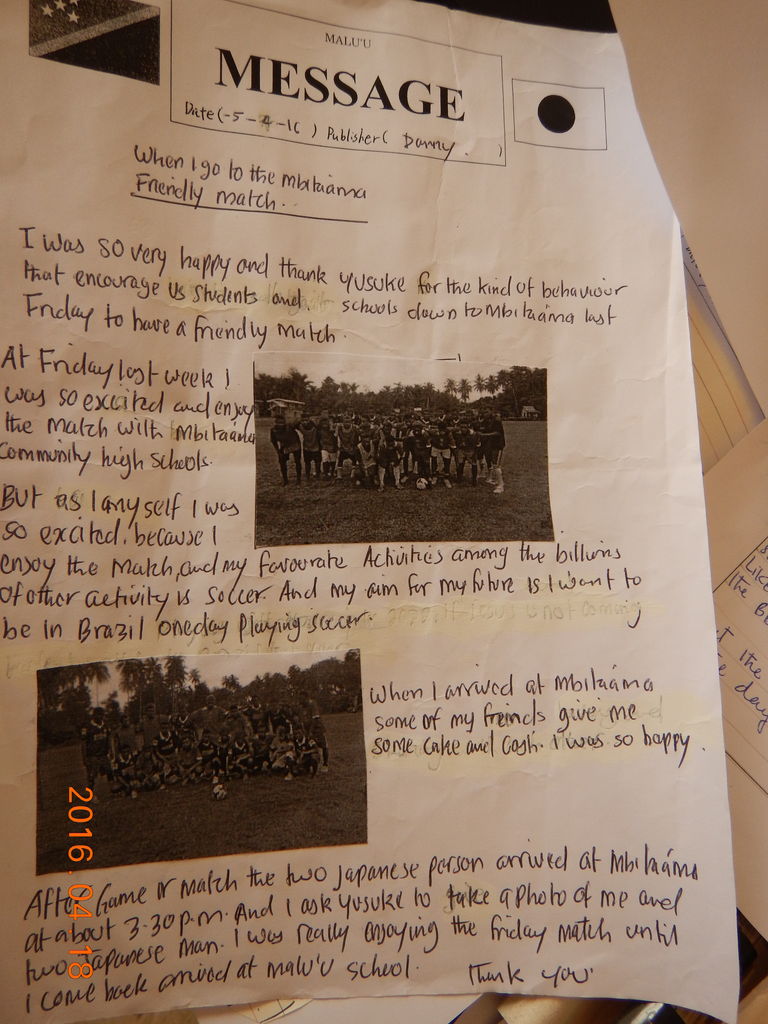 MALU'U
MESSAGE
Date (-5-4-16) Publisher( Danny. )
When I go to the Mbitaáma
Friendly match..
I was so very happy and thank yusuke for the kind of behaviour
that encourage us students and schools down to Mbitaáma last
Friday to have a friendly match.
At Friday last week I
was so excited and enjoy
the match with Mbitaáma
Community high schools.
But as I anyself I was
so excited, because I
enjoy the match, and my favourate Activities among the billions
of other activity is soccer. And my aim for my future is I want to
be in Brazil oneday playing soccer.
When I arrived at Mbitaáma
some of my freinds give me
some cake and cash. I was so happy.
After Game or match the two japanese person arrived at Mbitaáma
at about 3.30 p.m. And I ask yusuke to take a photo of me and
two Japanese man. I was really enjoying the friday match until
I come back arrived at malu'u school. Thank you.
2016.04.18
Like
the
the
day